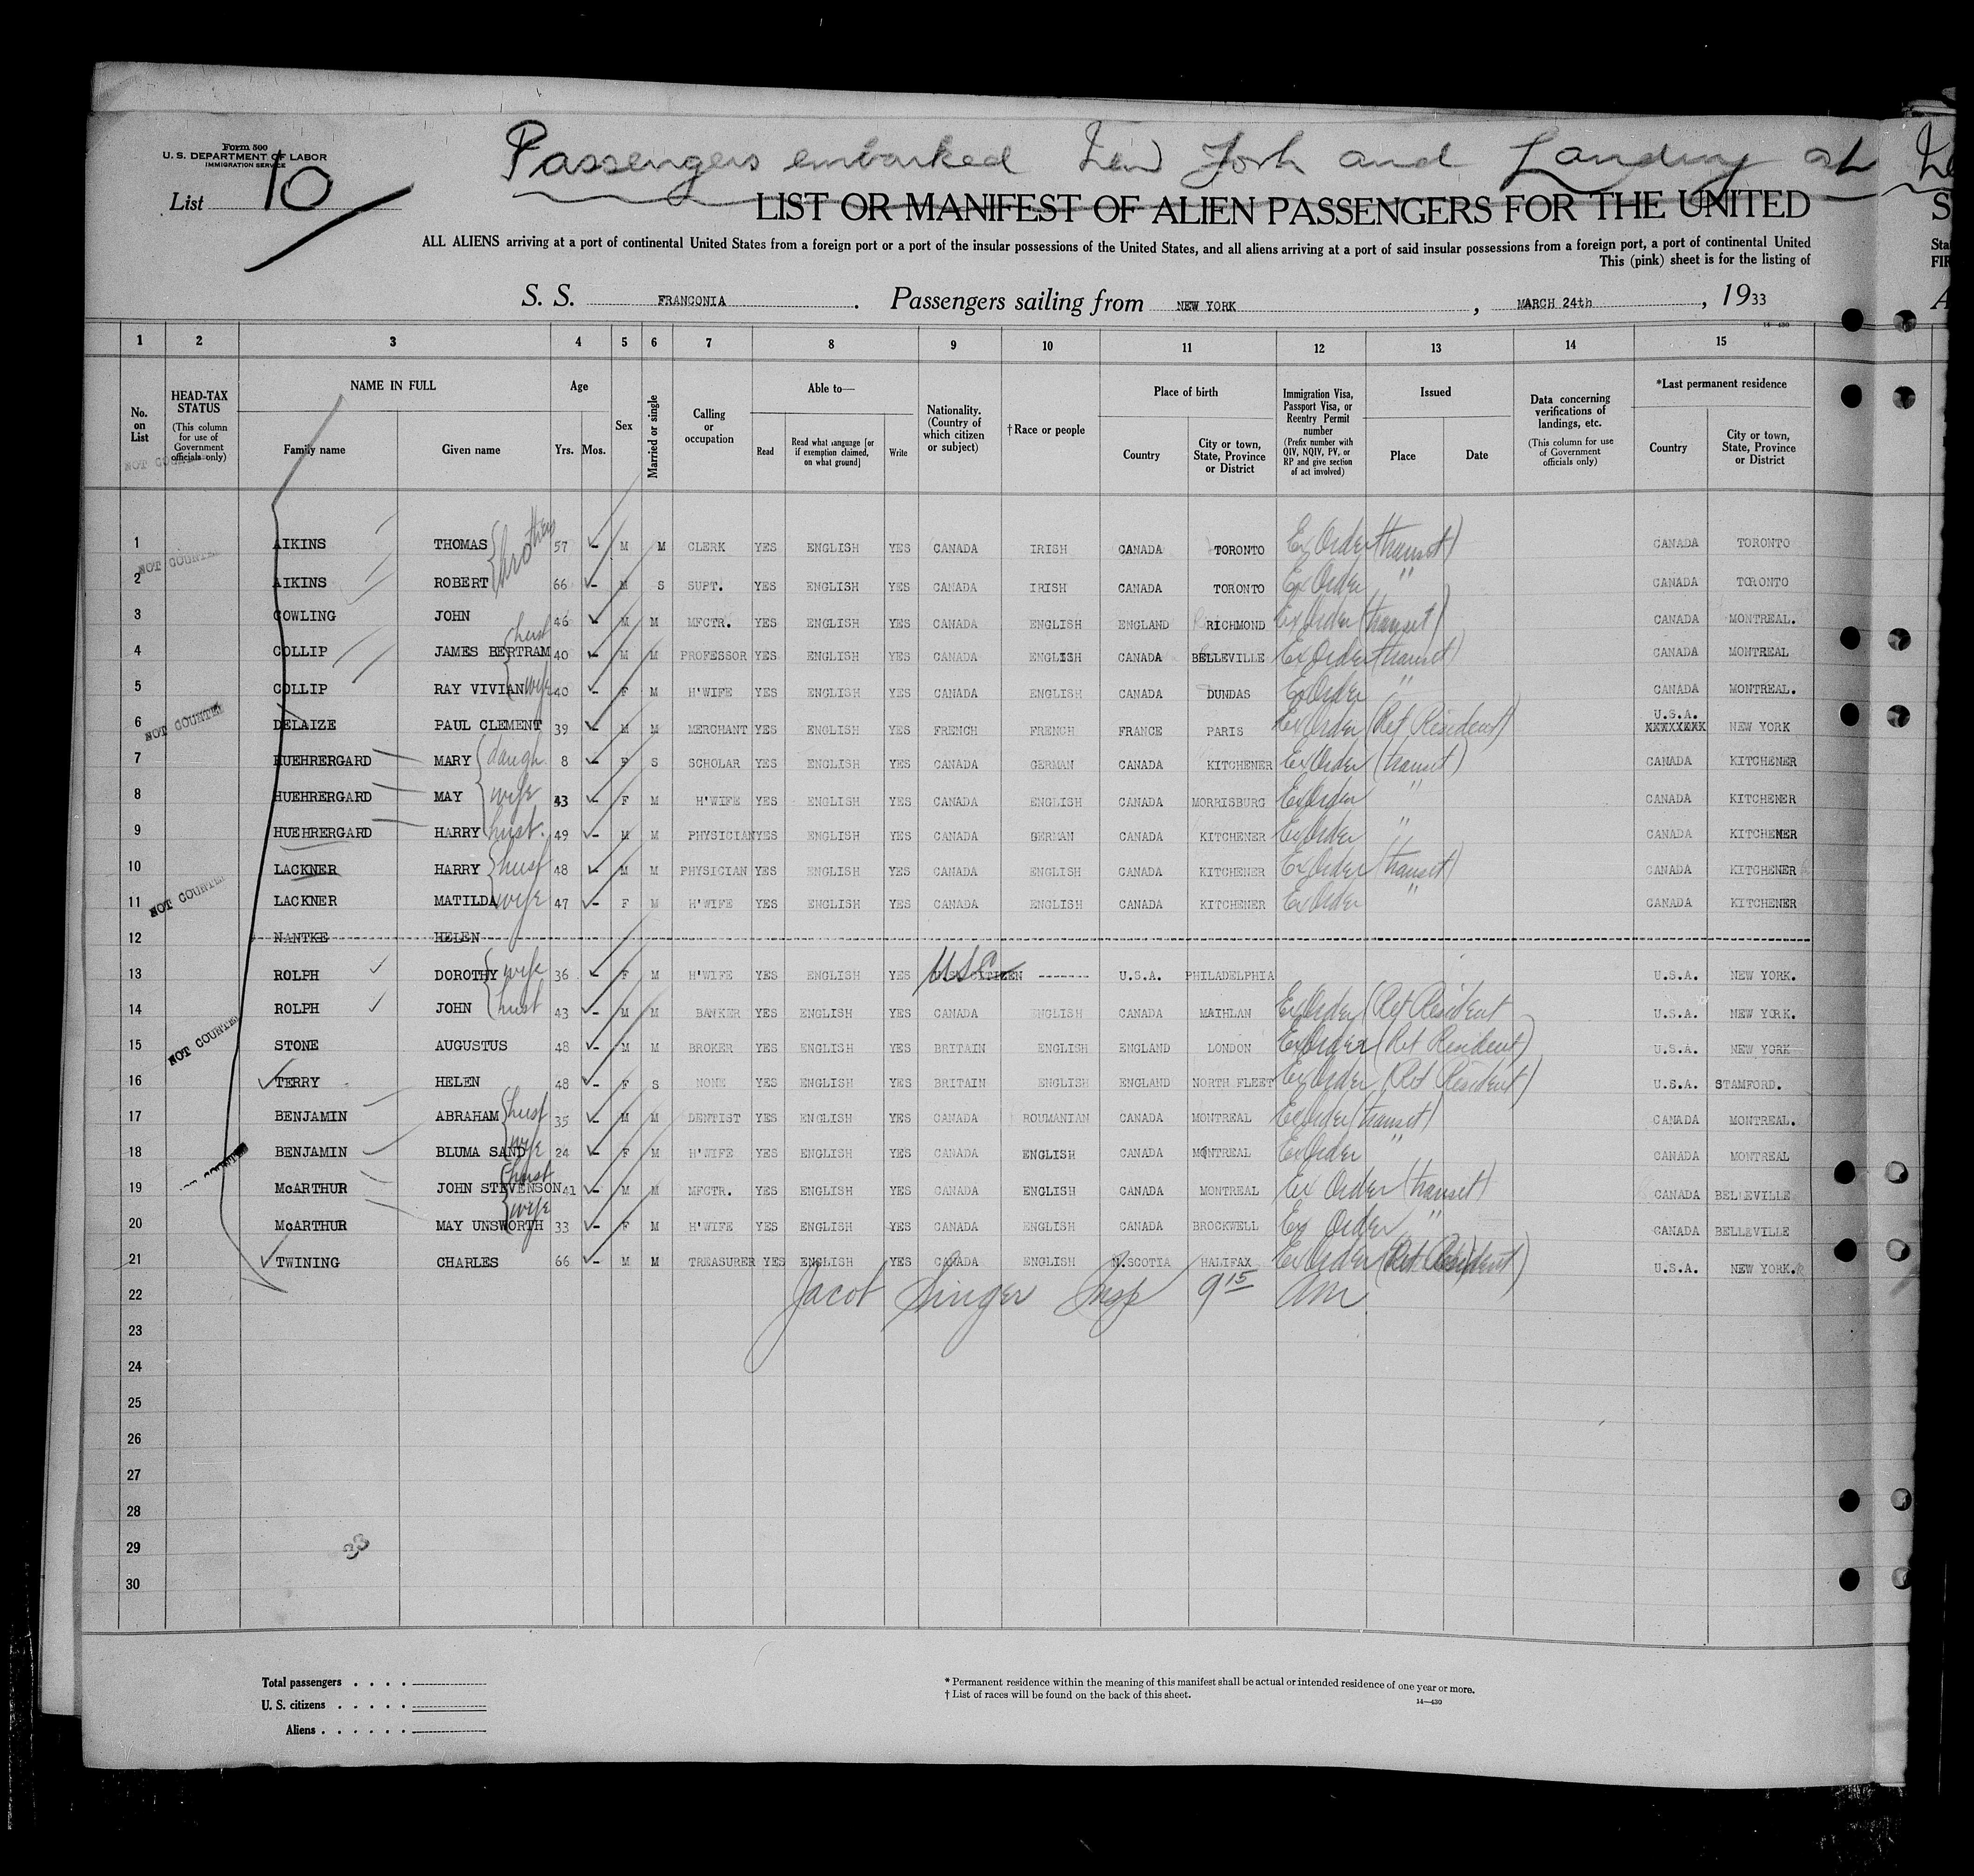 Form 500
U. S. DEPARTMENT OF LABOR
IMMIGRATION SERVICE
List 10
Passengers embarked New York and Landing at
LIST OR MANIFEST OF ALIEN PASSENGERS FOR THE UNITED
ALL ALIENS arriving at a port of continental United States from a foreign port or a port of the insular possessions of the United States, and all aliens arriving at a port of said insular possessions from a foreign port, a port of continental United
This (pink) sheet is for the listing of
S. S. FRANCONIA. Passengers sailing from NEW YORK, MARCH 24th, 1933
14—430
1 2 3 4 5 6 7 8 9 10 11 12 13 14 15
No. on List
HEAD-TAX STATUS (This column for use of Government officials only)
NAME IN FULL Family name Given name
Age Yrs. Mos.
Sex
Married or single
Calling or occupation
Able to— Read Read what language [or if exemption claimed, on what ground] Write
Nationality. (Country of which citizen or subject)
†Race or people
Place of birth Country City or town, State, Province or District
Immigration Visa, Passport Visa, or Reentry Permit number (Prefix number with QIV, NQIV, PV, or RP and give section of act involved)
Issued Place Date
Data concerning verifications of landings, etc. (This column for use of Government officials only)
*Last permanent residence Country City or town, State, Province or District
NOT COUNTED
1 AIKINS THOMAS brothers 57 - M M CLERK YES ENGLISH YES CANADA IRISH CANADA TORONTO Ex Order (transit) CANADA TORONTO
NOT COUNTED
2 AIKINS ROBERT 66 - M S SUPT. YES ENGLISH YES CANADA IRISH CANADA TORONTO Ex Order " CANADA TORONTO
3 COWLING JOHN 46 M M MFCTR. YES ENGLISH YES CANADA ENGLISH ENGLAND RICHMOND Ex Order (transit) CANADA MONTREAL.
4 COLLIP JAMES BERTRAM husf 40 - M M PROFESSOR YES ENGLISH YES CANADA ENGLISH CANADA BELLEVILLE Ex Order (transit) CANADA MONTREAL
5 COLLIP RAY VIVIAN wife 40 - F M H'WIFE YES ENGLISH YES CANADA ENGLISH CANADA DUNDAS Ex Order " CANADA MONTREAL.
NOT COUNTED
6 DELAIZE PAUL CLEMENT 39 M M MERCHANT YES ENGLISH YES FRENCH FRENCH FRANCE PARIS Ex Order (Ret Resident) U.S.A. XXXXXXXX NEW YORK
7 HUEHRERGARD MARY daugh 8 F S SCHOLAR YES ENGLISH YES CANADA GERMAN CANADA KITCHENER Ex Order (transit) CANADA KITCHENER
8 HUEHRERGARD MAY wife 43 - F M H'WIFE YES ENGLISH YES CANADA ENGLISH CANADA MORRISBURG Ex Order " CANADA KITCHENER
9 HUEHRERGARD HARRY husf. 49 - M M PHYSICIAN YES ENGLISH YES CANADA GERMAN CANADA KITCHENER Ex Order " CANADA KITCHENER
10 LACKNER HARRY husf 48 M M PHYSICIAN YES ENGLISH YES CANADA ENGLISH CANADA KITCHENER Ex Order (transit) CANADA KITCHENER
NOT COUNTED
11 LACKNER MATILDA wife 47 - F M H'WIFE YES ENGLISH YES CANADA ENGLISH CANADA KITCHENER Ex Order " CANADA KITCHENER
12 NANTKE HELEN
13 ROLPH DOROTHY wife 36 F M H'WIFE YES ENGLISH YES USC U.S. CITIZEN ------- U.S.A. PHILADELPHIA U.S.A. NEW YORK.
14 ROLPH JOHN husf 43 - M M BANKER YES ENGLISH YES CANADA ENGLISH CANADA MAIHLAN Ex Order (Ret Resident U.S.A. NEW YORK.
NOT COUNTED
15 STONE AUGUSTUS 48 - M M BROKER YES ENGLISH YES BRITAIN ENGLISH ENGLAND LONDON Ex Order (Ret Resident) U.S.A. NEW YORK
16 TERRY HELEN 48 - F S NONE YES ENGLISH YES BRITAIN ENGLISH ENGLAND NORTH FLEET Ex Order (Ret Resident) U.S.A. STAMFORD.
17 BENJAMIN ABRAHAM husf 35 - M M DENTIST YES ENGLISH YES CANADA ROUMANIAN CANADA MONTREAL Ex Order (transit) CANADA MONTREAL.
18 BENJAMIN BLUMA SAND wife 24 - F M H'WIFE YES ENGLISH YES CANADA ENGLISH CANADA MONTREAL Ex Order " CANADA MONTREAL
19 McARTHUR JOHN STEVENSON husf 41 - M M MFCTR. YES ENGLISH YES CANADA ENGLISH CANADA MONTREAL Ex Order (transit) CANADA BELLEVILLE
20 McARTHUR MAY UNSWORTH wife 33 - F M H'WIFE YES ENGLISH YES CANADA ENGLISH CANADA BROCKWELL Ex Order " CANADA BELLEVILLE
21 TWINING CHARLES 66 - M M TREASURER YES ENGLISH YES CANADA ENGLISH N.SCOTIA HALIFAX Ex Order (Ret Resident) U.S.A. NEW YORK.
22 Jacob Singer Insp 9 15 AM
23
24
25
26
27
28
29
30
33
Total passengers . . . .
U. S. citizens . . . . .
Aliens . . . . . .
* Permanent residence within the meaning of this manifest shall be actual or intended residence of one year or more.
† List of races will be found on the back of this sheet.
14—430